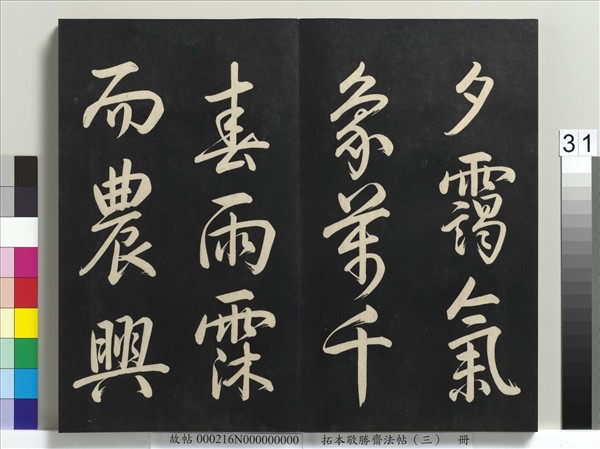 夕靄氣
象萬千
春雨霖
而農興
31
故帖 000216N000000000 拓本敬勝齋法帖（三） 冊